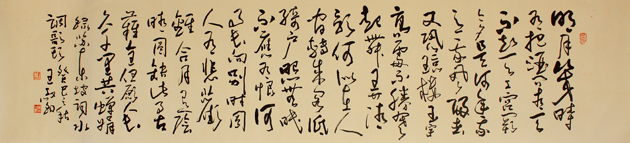 明月幾時
有把酒問青天
不知天上宮闕
今夕是何年我
欲乘風歸去
又恐瓊樓玉宇
高處不勝寒
起舞弄清
影何似在人
間轉朱閣低
綺戶照無眠
不應有恨何
事長向別時圓
人有悲歡
離合月有陰
晴圓缺此事古
難全但願人長
久千里共嬋娟
錄蘇東坡詞水
調歌頭 癸巳之秋 王